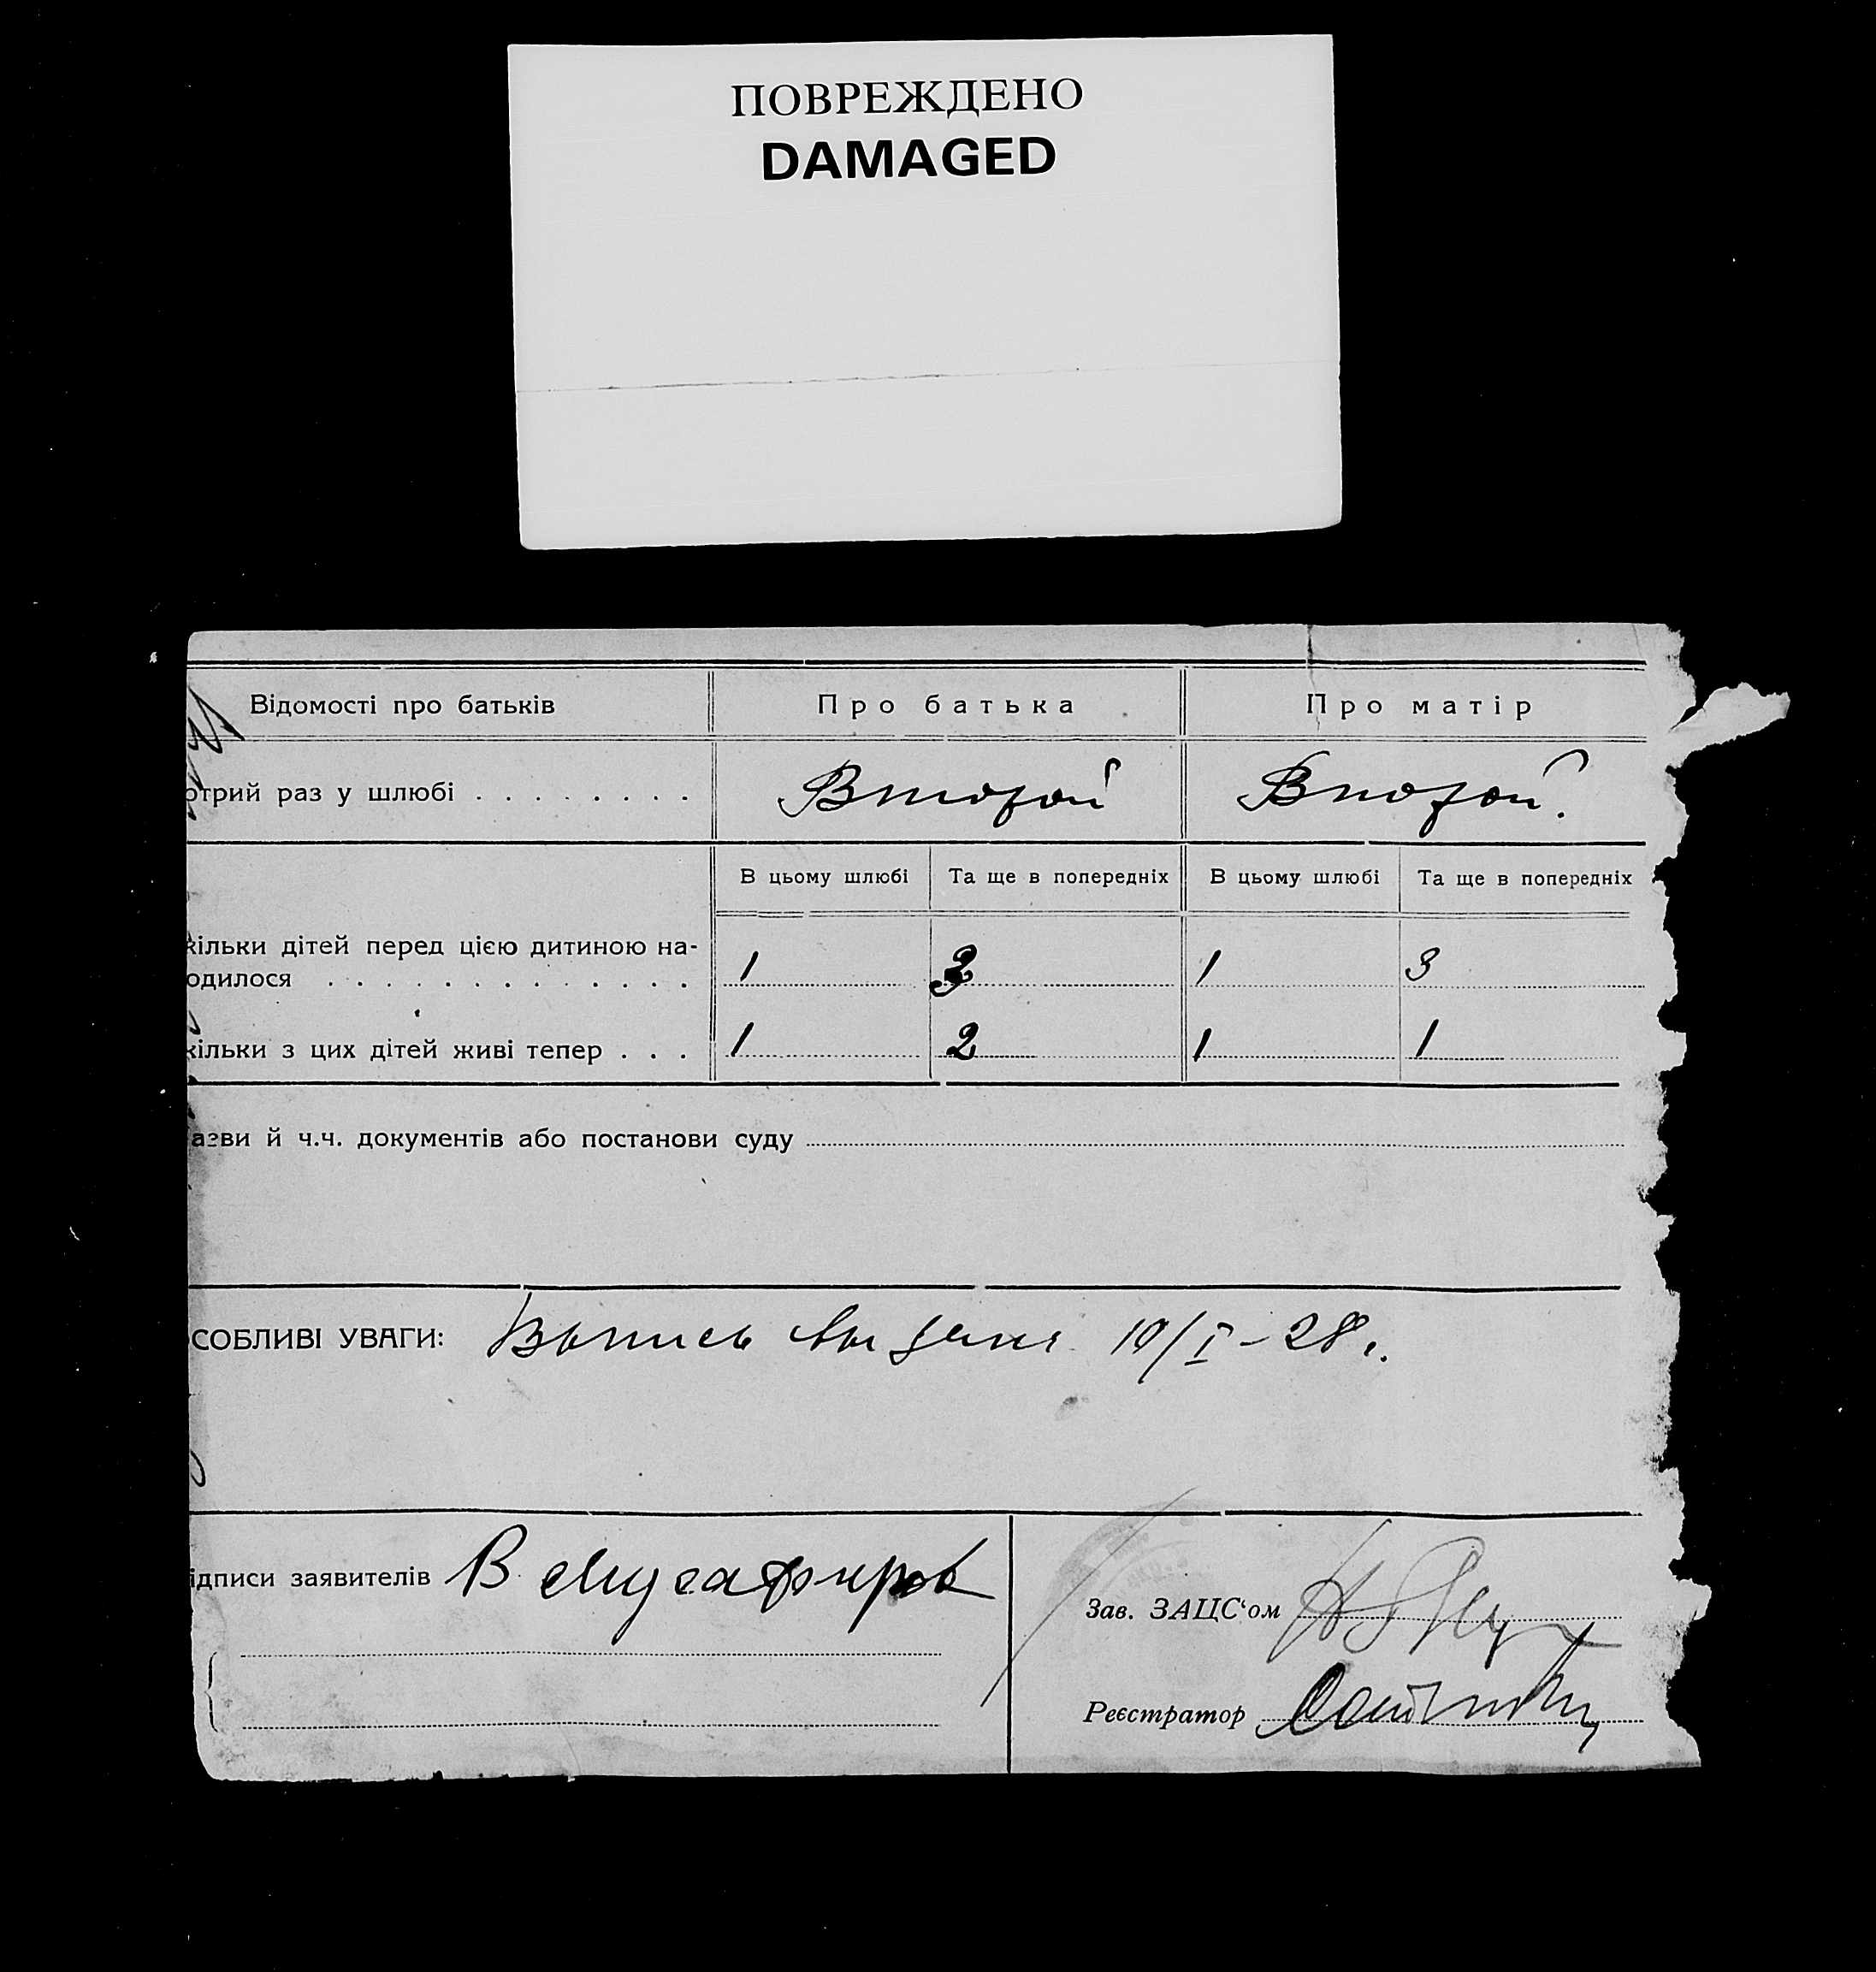 ПОВРЕЖДЕНО
DAMAGED
Відомості про батьків Про батька Про матір
отрий раз у шлюбі . . . . . . . . Второй Второй.
В цьому шлюбі Та ще в попередніх В цьому шлюбі Та ще в попередніх
кільки дітей перед цією дитиною на-
одилося . . . . . . . . . . . . . . 1 3 1 3
кільки з цих дітей живі тепер . . . 1 2 1 1
азви й ч.ч. документів або постанови суду
СОБЛИВІ УВАГИ: Выпись выдана 10/I-28г.
ідписи заявителів В Мусафиров
Зав. ЗАЦС‘ом
Реєстратор